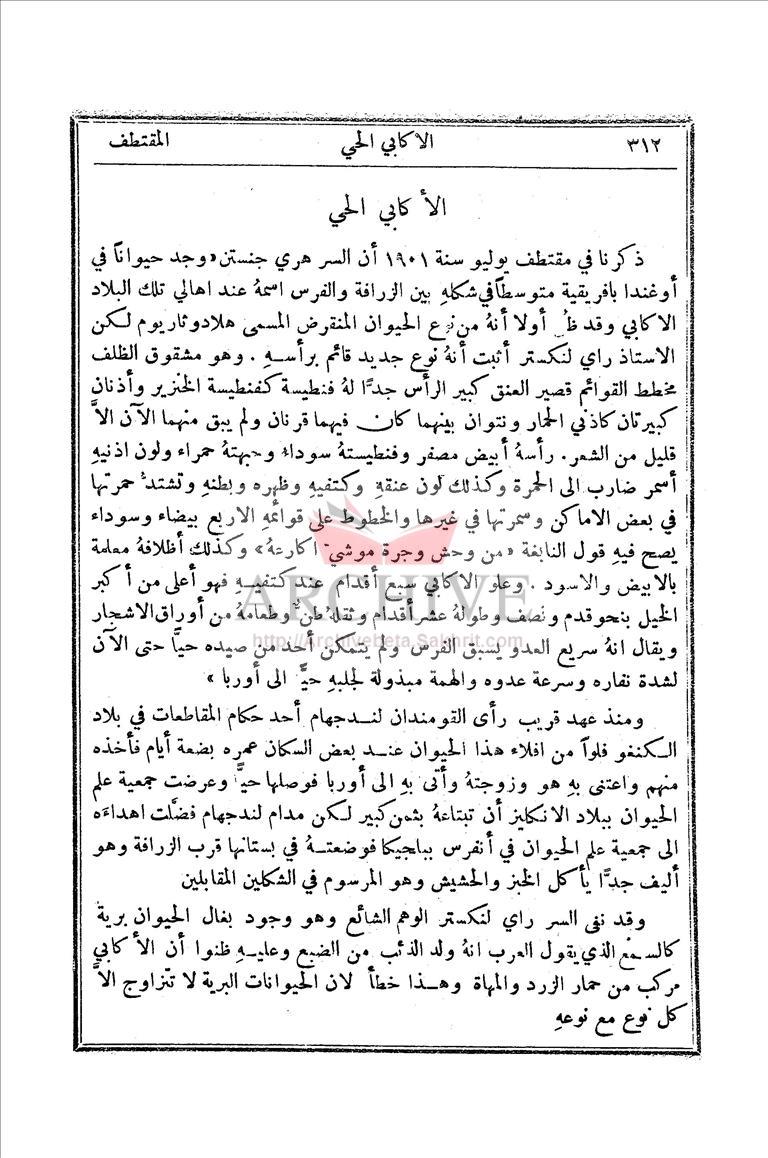 ٣١٢ الاكابي الحي المقتطف
الأكابي الحي
ذكرنا في مقتطف يوليو سنة ١٩٠١ أن السر هري جنستن «وجد حيواناً في
أوغندا بافريقية متوسطاً في شكلهِ بين الزرافة والفرس اسمهُ عند اهالي تلك البلاد
الاكابي وقد ظُن أولا أنهُ من نوع الحيوان المنقرض المسمى هلادوثاريوم لكن
الاستاذ راي لنكستر أثبت أنهُ نوع جديد قائم برأسهِ . وهو مشقوق الظلف
مخطط القوائم قصير العنق كبير الرأس جدًّا لهُ فنطيسة كفنطيسة الخنزير وأذنان
كبيرتان كاذني الحمار ونتوان بينهما كان فيهما قرنان ولم يبق منهما الآن الاَّ
قليل من الشعر. رأسهُ أبيض مصفر وفنطيستهُ سوداء وجبهتهُ حمراء ولون اذنيهِ
أسمر ضارب الى الحمرة وكذلك لون عنقهِ وكتفيهِ وظهره وبطنهِ وتشتدُّ حمرتها
في بعض الاماكن وسمرتها في غيرها والخطوط على قوائمهِ الاربع بيضاء وسوداء
يصح فيهِ قول النابغة «من وحش وجرة موشيّ اكارعهُ» وكذلك أظلافهُ معلمة
بالابيض والاسود . وعلو الاكابي سبع أقدام عند كتفيهِ فهو أعلى من أكبر
الخيل بنحو قدم ونصف وطولهُ عشر أقدام وثقلهُ طنٌّ وطعامهُ من أوراق الاشجار
ويقال انهُ سريع العدو يسبق الفرس ولم يتمكن أحد من صيده حيًّا حتى الآن
لشدة نفاره وسرعة عدوه والهمة مبذولة لجلبهِ حيًّا الى أوربا »
ومنذ عهد قريب رأى القومندان لندجهام أحد حكام المقاطعات في بلاد
الكنغو فلواً من افلاء هذا الحيوان عند بعض السكان عمره بضعة أيام فأخذه
منهم واعتنى بهِ هو وزوجتهُ وأتى بهِ الى أوربا فوصلها حيًّا وعرضت جمعية علم
الحيوان ببلاد الانكليز أن تبتاعهُ بثمن كبير لكن مدام لندجهام فضَّلت اهداءَه
الى جمعية علم الحيوان في أنفرس ببلجيكا فوضعتهُ في بستانها قرب الزرافة وهو
أليف جدًّا يأكل الخبز والحشيش وهو المرسوم في الشكلين المقابلين
وقد نفى السر راي لنكستر الوهم الشائع وهو وجود بغال الحيوان برية
كالسمْع الذي يقول العرب انهُ ولد الذئب من الضبع وعليهِ ظنوا أن الأكابي
مركب من حمار الزرد والمهاة وهذا خطأ لان الحيوانات البرية لا تتزاوج الاَّ
كل نوع مع نوعهِ
ARCHIVE
http://Archivebeta.Sakhrit.com